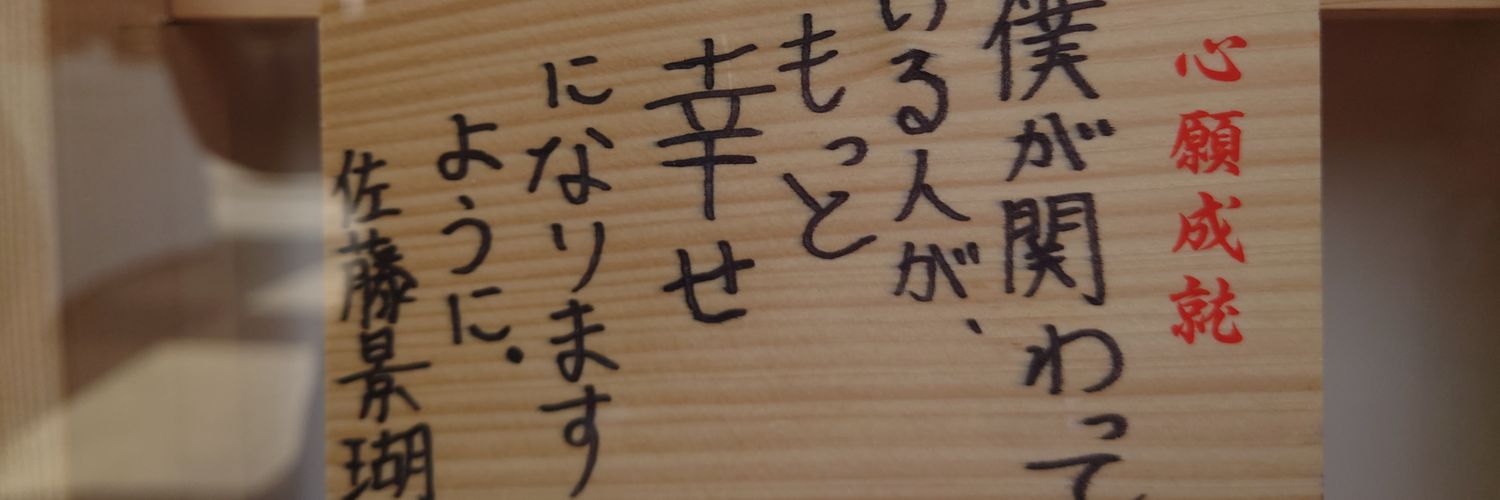 心願成就
僕が関わって
いる人が、
もっと
幸せ
になります
ように.
佐藤景瑚